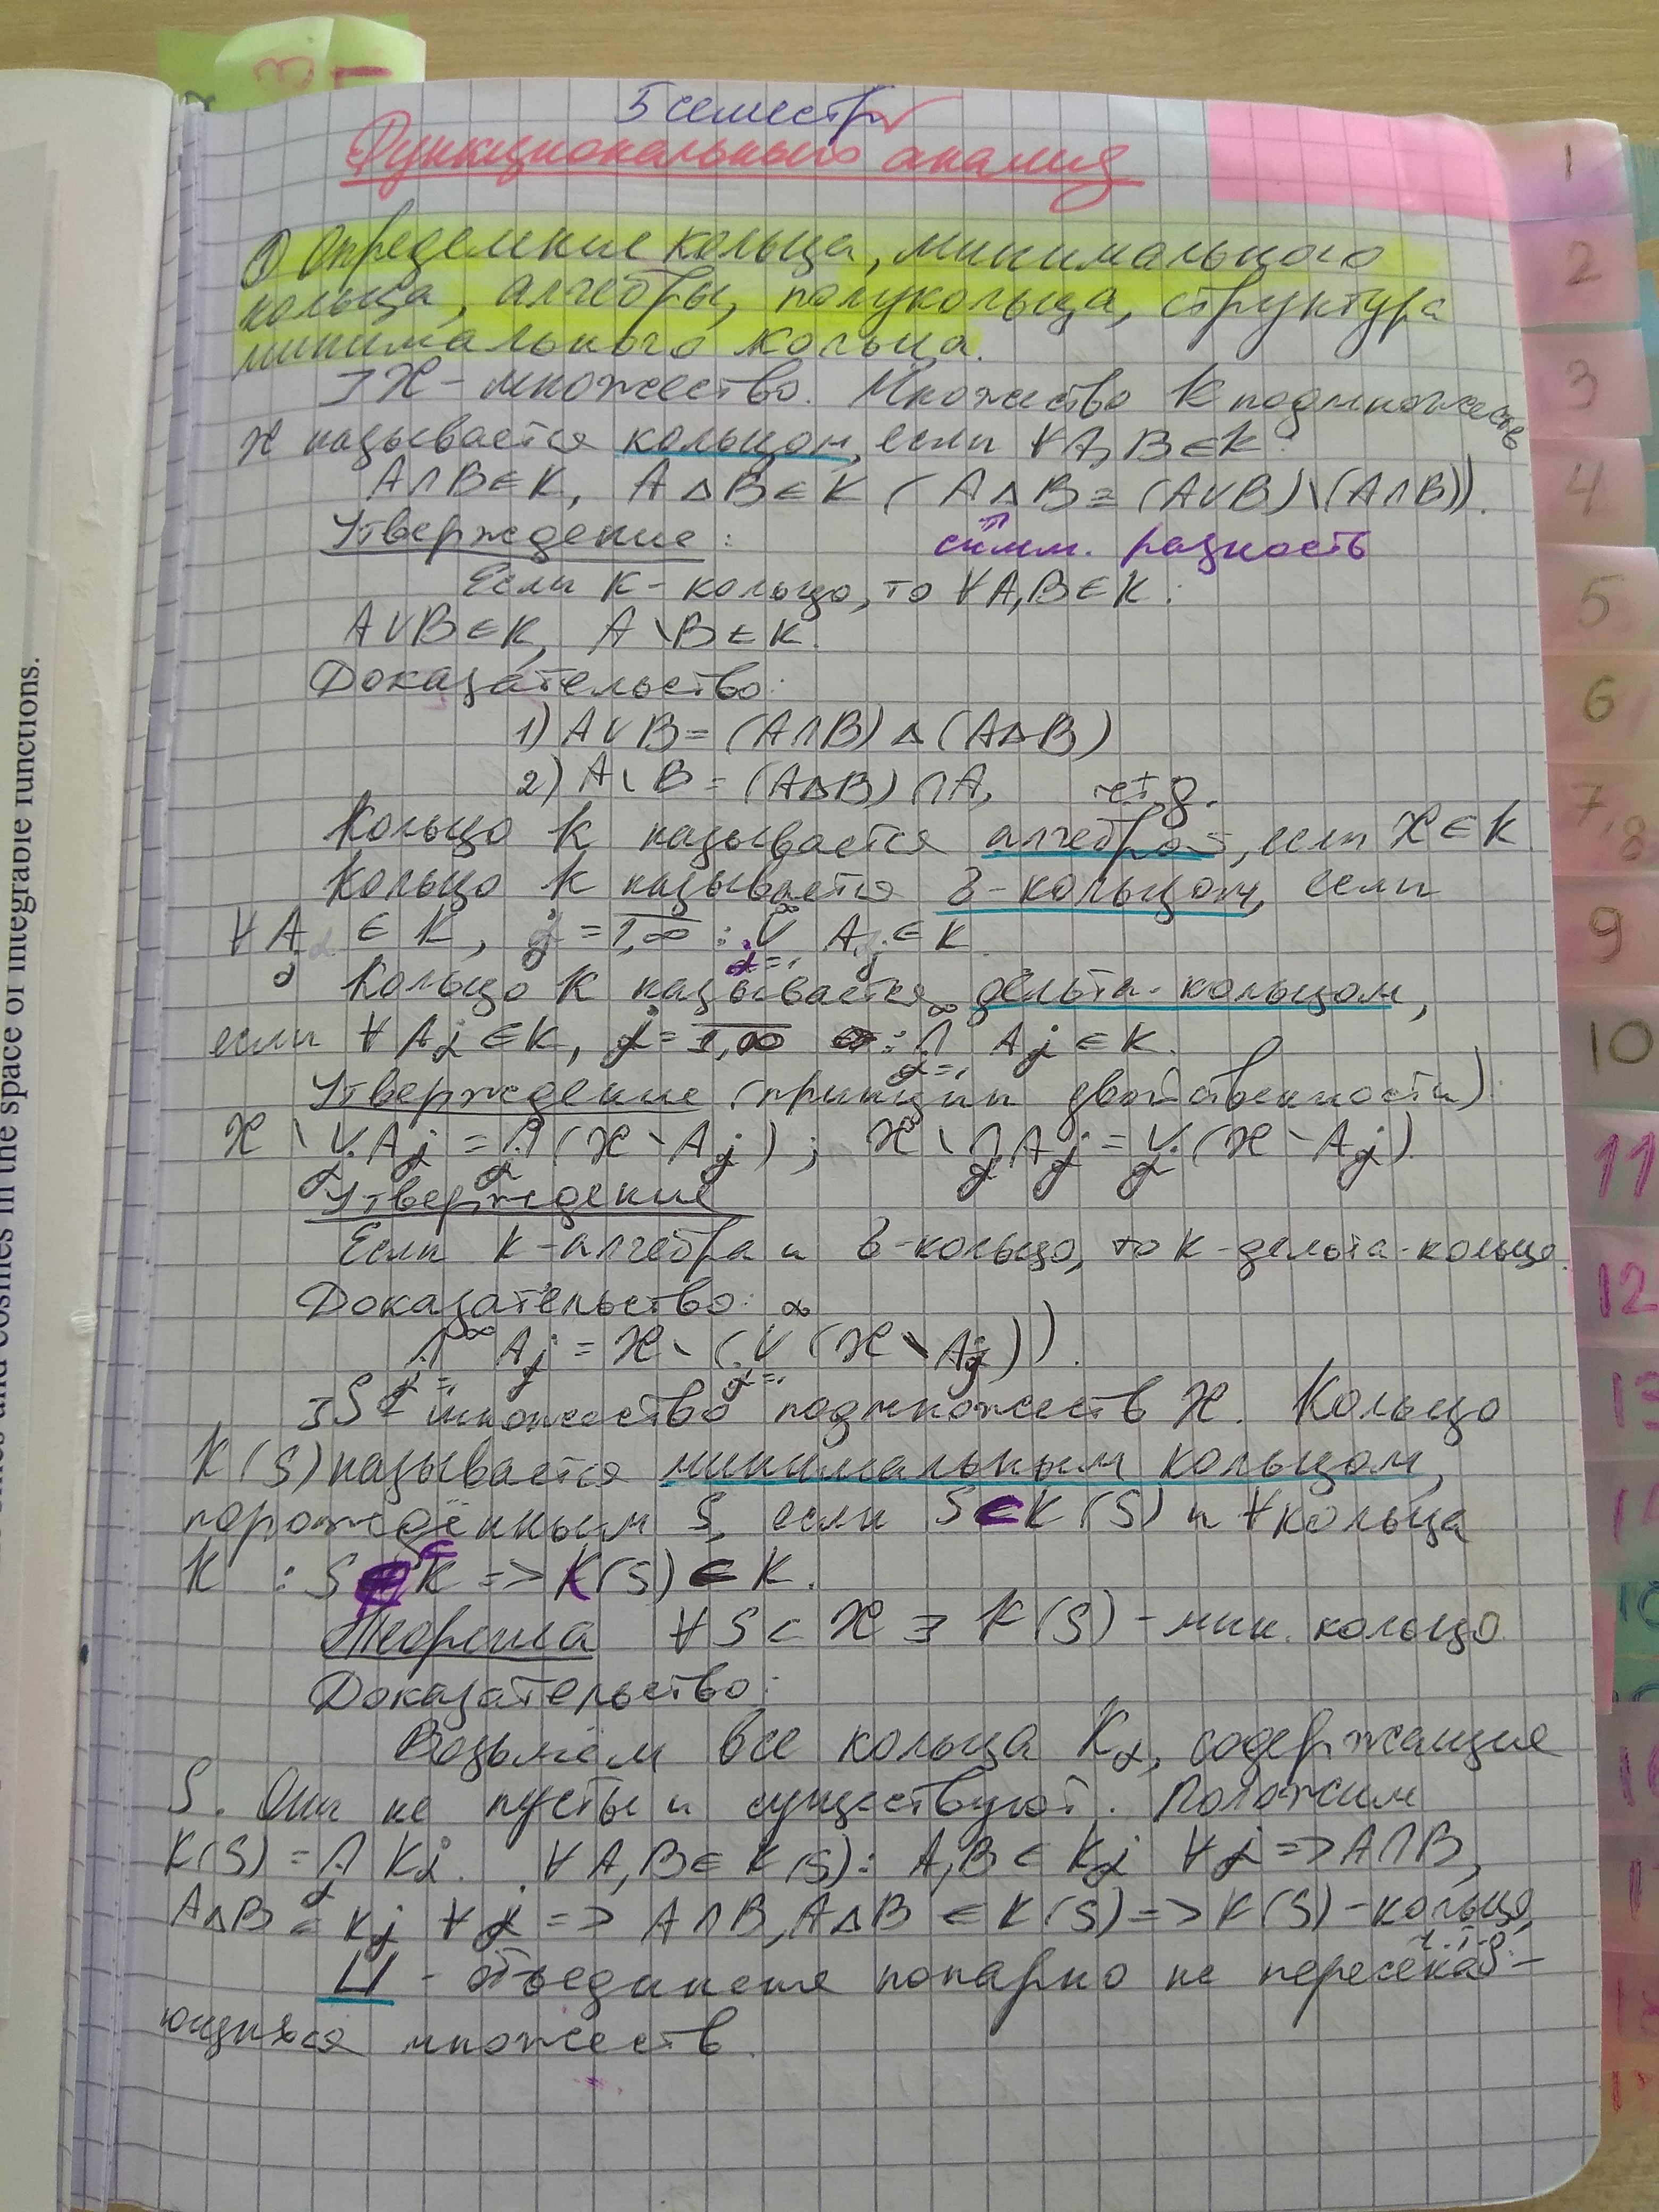 5 семестр
Функциональный анализ
① Определение кольца, минимального
кольца, алгебры, полукольца, структура
минимального кольца.
⊐ X - множество. Множество K подмножеств
X называется кольцом, если ∀A,B∈K:
A∩B∈K, A△B∈K (A△B=(A∪B)\(A∩B)).
симм. разность
Утверждение:
Если K - кольцо, то ∀A,B∈K:
A∪B∈K, A\B∈K.
Доказательство:
1) A∪B=(A∩B)△(A△B)
2) A\B=(A△B)∩A, чтд.
Кольцо K называется алгеброй, если X∈K
Кольцо K называется σ-кольцом, если
∀A_j∈K, j=1,∞: ∞∪j=1 A_j∈K
Кольцо K называется дельта-кольцом,
если ∀A_j∈K, j=1,∞ : ∞∩j=1 A_j∈K.
Утверждение (принцип двойственности):
X\∪_j A_j=∩_j(X\A_j); X\∩_j A_j=∪_j(X\A_j)
Утверждение
Если K-алгебра и σ-кольцо, то K-дельта-кольцо.
Доказательство:
∞∩j=1 A_j=X\(∞∪j=1(X\A_j)).
⊐ S - множество подмножеств X. Кольцо
K(S) называется минимальным кольцом,
порождённым S, если S⊂K(S) и ∀кольца
K : S⊂K => K(S)⊂K.
Теорема ∀S⊂X ∃ K(S) - мин. кольцо
Доказательство:
Возьмём все кольца K_α, содержащие
S. Они не пусты и существуют. Положим
K(S)=∩_j K_j. ∀A,B∈K(S): A,B∈K_j ∀j => A∩B,
A△B∈K_j ∀j => A∩B, A△B∈K(S) => K(S)-кольцо,
ч.т.д.
⊔ - объединение попарно не пересека-
ющихся множеств.
1
2
3
4
5
6
7,8
9
10
11
12
13
e of integrable functions.
and cosines in the space